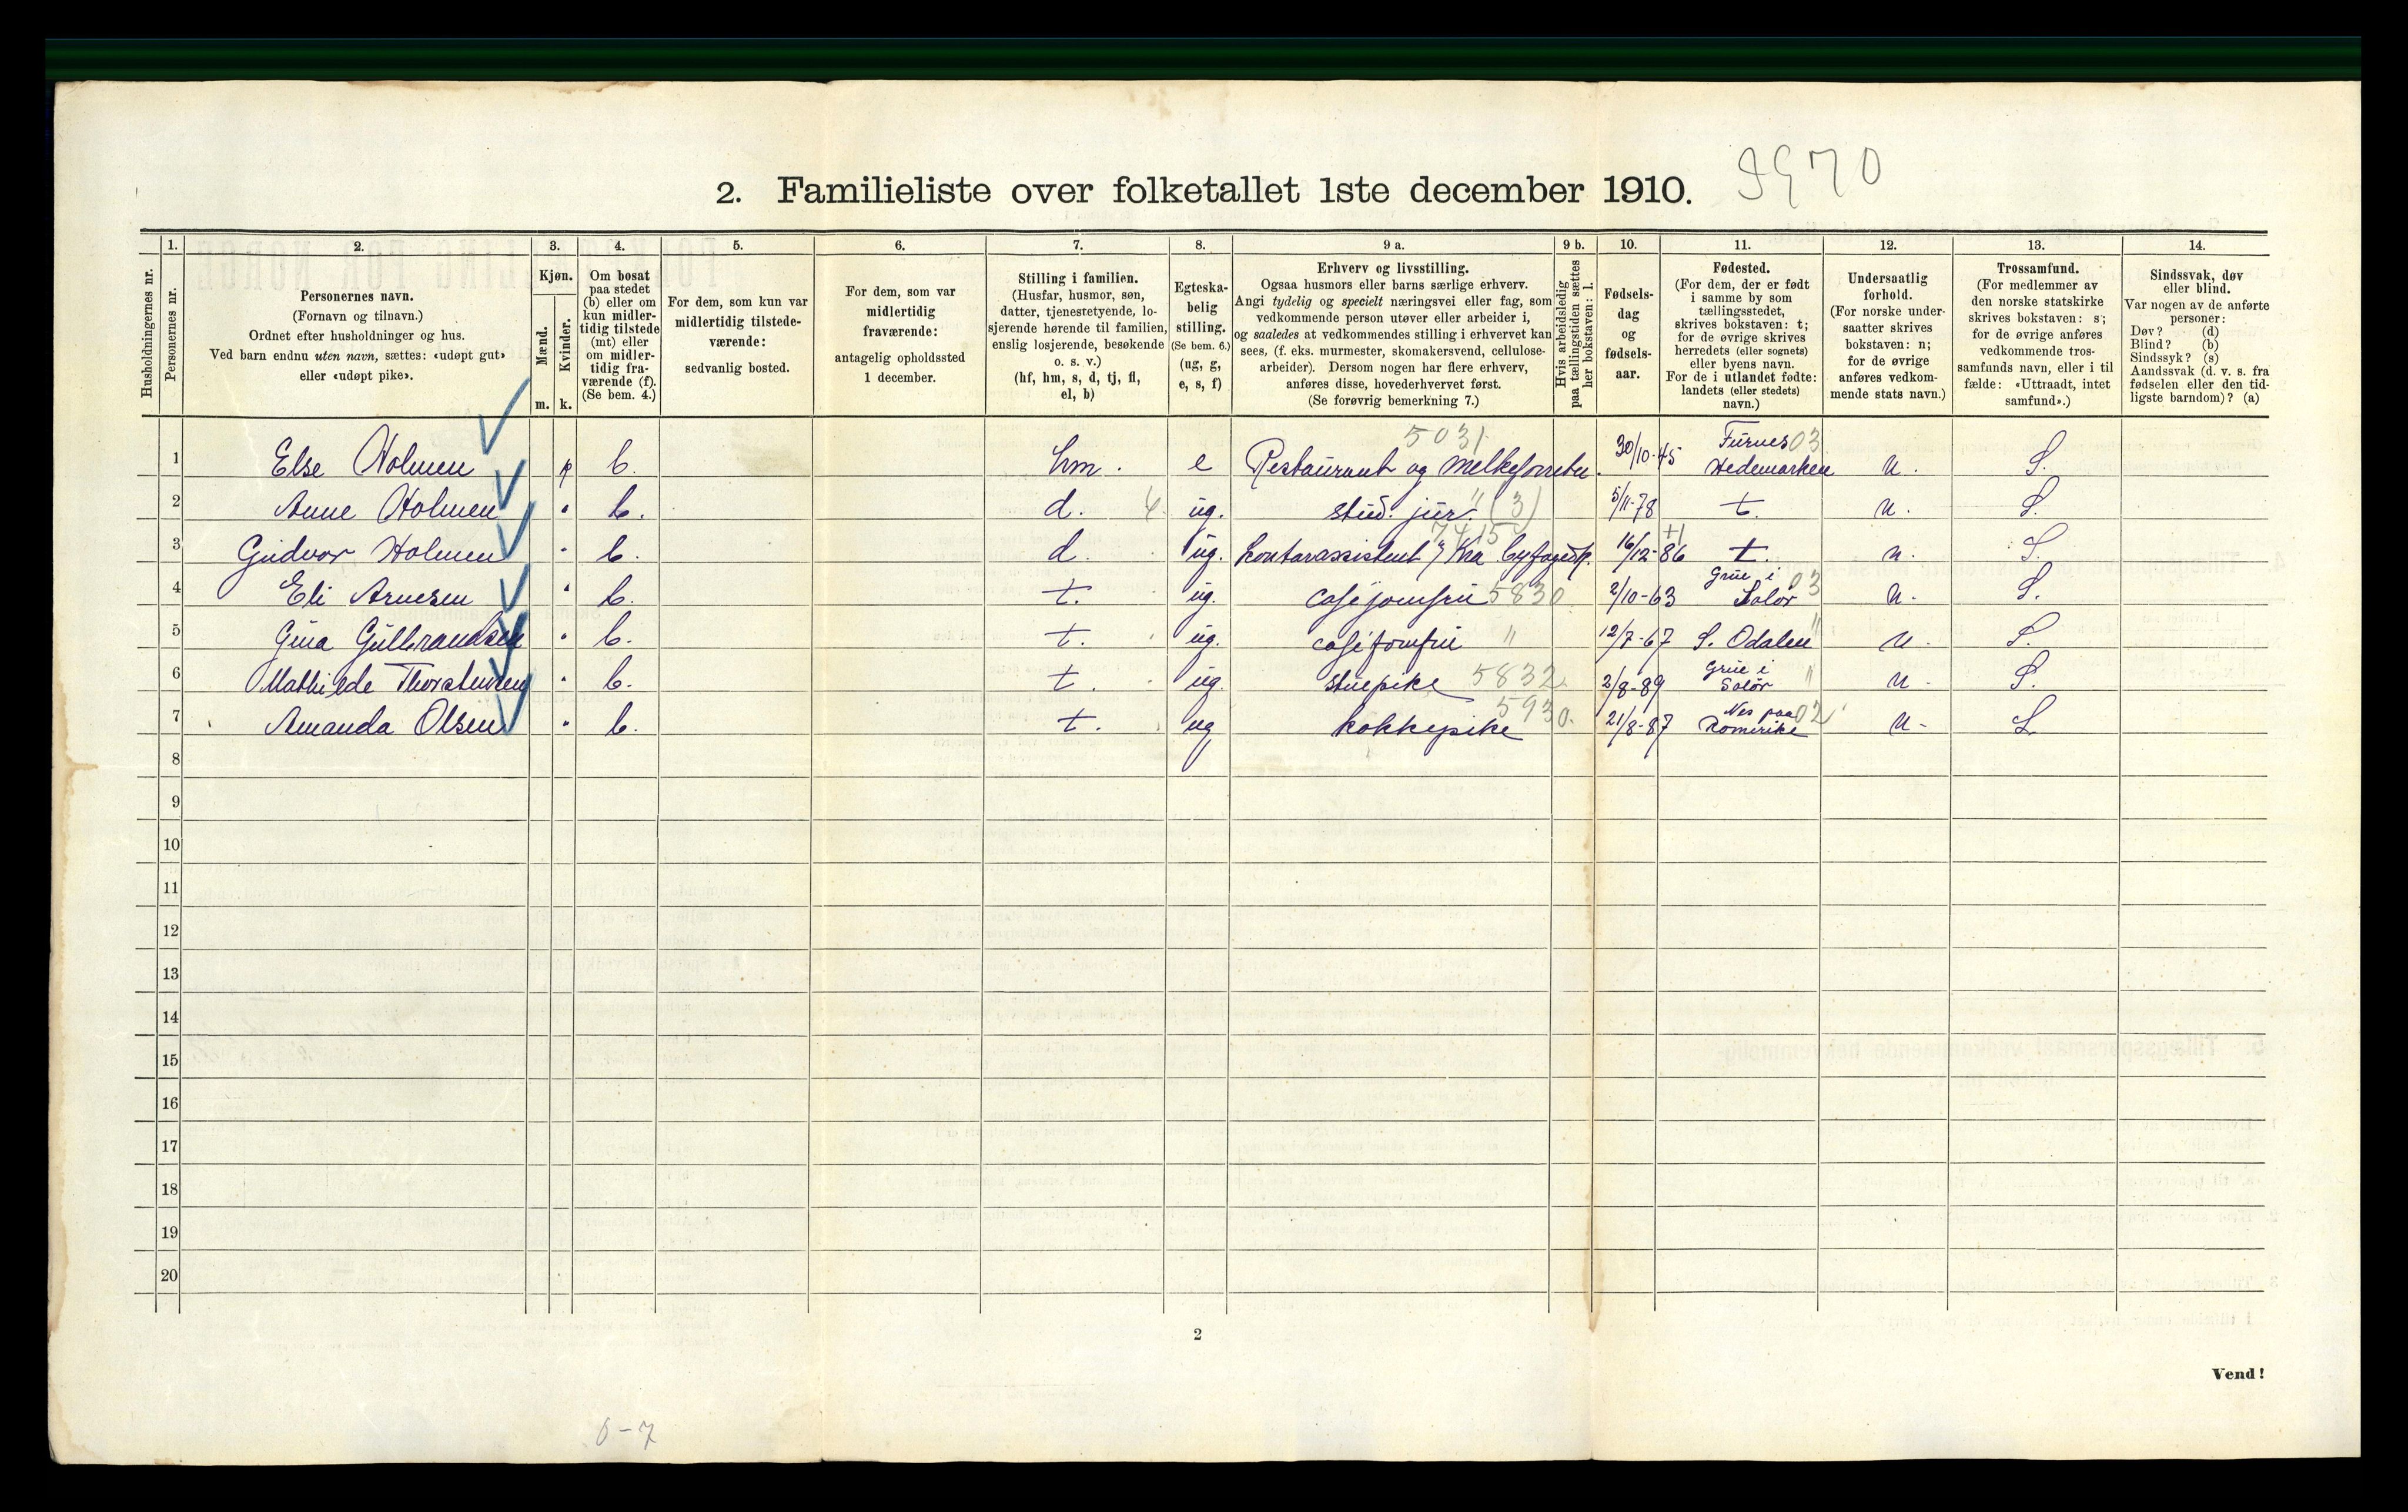 2. Familieliste over folketallet 1ste december 1910. 9970
1. 2. 3. 4. 5. 6. 7. 8. 9 a. 9 b. 10. 11. 12. 13. 14.
Husholdningernes nr.
Personernes nr.
Personernes navn.
(Fornavn og tilnavn.)
Ordnet efter husholdninger og hus.
Ved barn endnu uten navn, sættes: «udøpt gut»
eller «udøpt pike».
Kjøn.
Mænd.
Kvinder.
m. k.
Om bosat
paa stedet
(b) eller om
kun midler-
tidig tilstede
(mt) eller
om midler-
tidig fra-
værende (f).
(Se bem. 4.)
For dem, som kun var
midlertidig tilstede-
værende:
sedvanlig bosted.
For dem, som var
midlertidig
fraværende:
antagelig opholdssted
1 december.
Stilling i familien.
(Husfar, husmor, søn,
datter, tjenestetyende, lo-
sjerende hørende til familien,
enslig losjerende, besøkende
o. s. v.)
(hf, hm, s, d, tj, fl,
el, b)
Egteska-
belig
stilling.
(Se bem. 6.)
(ug, g,
e, s, f)
Erhverv og livsstilling.
Ogsaa husmors eller barns særlige erhverv.
Angi tydelig og specielt næringsvei eller fag, som
vedkommende person utøver eller arbeider i,
og saaledes at vedkommendes stilling i erhvervet kan
sees, (f. eks. murmester, skomakersvend, cellulose-
arbeider). Dersom nogen har flere erhverv,
anføres disse, hovederhvervet først.
(Se forøvrig bemerkning 7.)
Hvis arbeidsledig
paa tællingstiden sættes
her bokstaven: l.
Fødsels-
dag
og
fødsels-
aar.
Fødested.
(For dem, der er født
i samme by som
tællingsstedet,
skrives bokstaven: t;
for de øvrige skrives
herredets (eller sognets)
eller byens navn.
For de i utlandet fødte:
landets (eller stedets)
navn.)
Undersaatlig
forhold.
(For norske under-
saatter skrives
bokstaven: n;
for de øvrige
anføres vedkom-
mende stats navn.)
Trossamfund.
(For medlemmer av
den norske statskirke
skrives bokstaven: s;
for de øvrige anføres
vedkommende tros-
samfunds navn, eller i til
fælde: «Uttraadt, intet
samfund».)
Sindssvak, døv
eller blind.
Var nogen av de anførte
personer:
Døv? (d)
Blind? (b)
Sindssyk? (s)
Aandssvak (d. v. s. fra
fødselen eller den tid-
ligste barndom)? (a)
5031 Furnes 03
1 Else Holmen k b. hm. e Restaurant og melkeforretn. 30/10-45 Hedemarken n. S.
2 Anne Holmen " b. d. ug. stud. jur. " (3) 5/11-78 t. n. S.
7415
3 Gudvor Holmen " b. d. ug. Kontorassistent 16/12-86 t. n. S.
Grue i 03
4 Eli Arnesen " b. t. ug. caféjomfru 5830 2/10-63 Solør n. S.
5 Gina Gulbrandsen " b. t. ug. caféjomfru " 12/7-67 S. Odalen " n. S.
Grue i
6 Mathilde Thorstensen " b. t. ug. stuepike 5832 2/8-89 Solør " n. S.
5930. Nes paa 02
7 Amanda Olsen " b. t. ug kokkepike 21/8-87 Romerike n. S.
8
9
10
11
12
13
14
15
16
17
18
19
20
2
Vend!
0-7